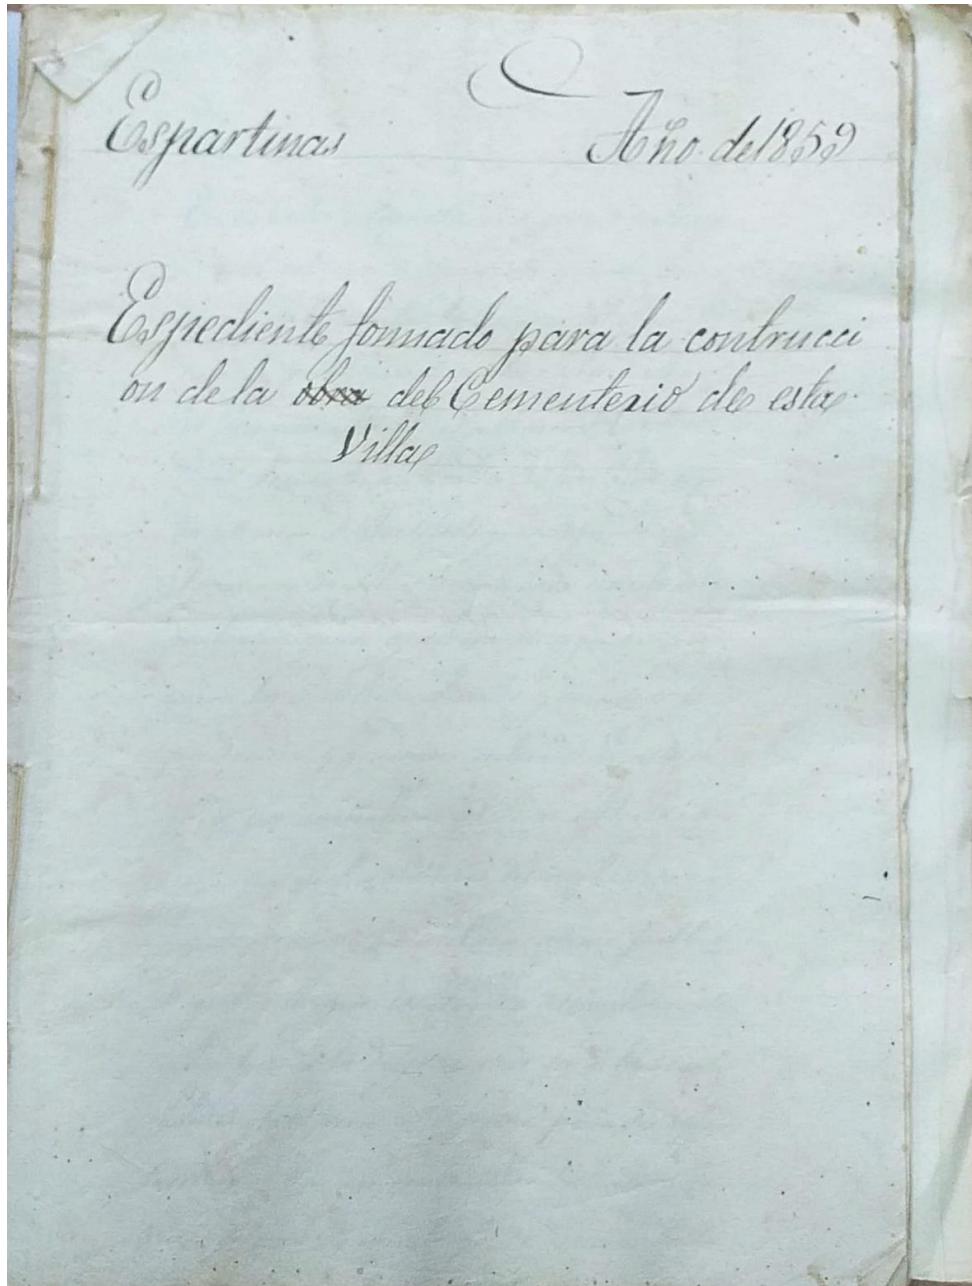 Espartinas Año de 1859
Espediente formado para la contrucci
on de la obra del Cementerio de esta
Villa